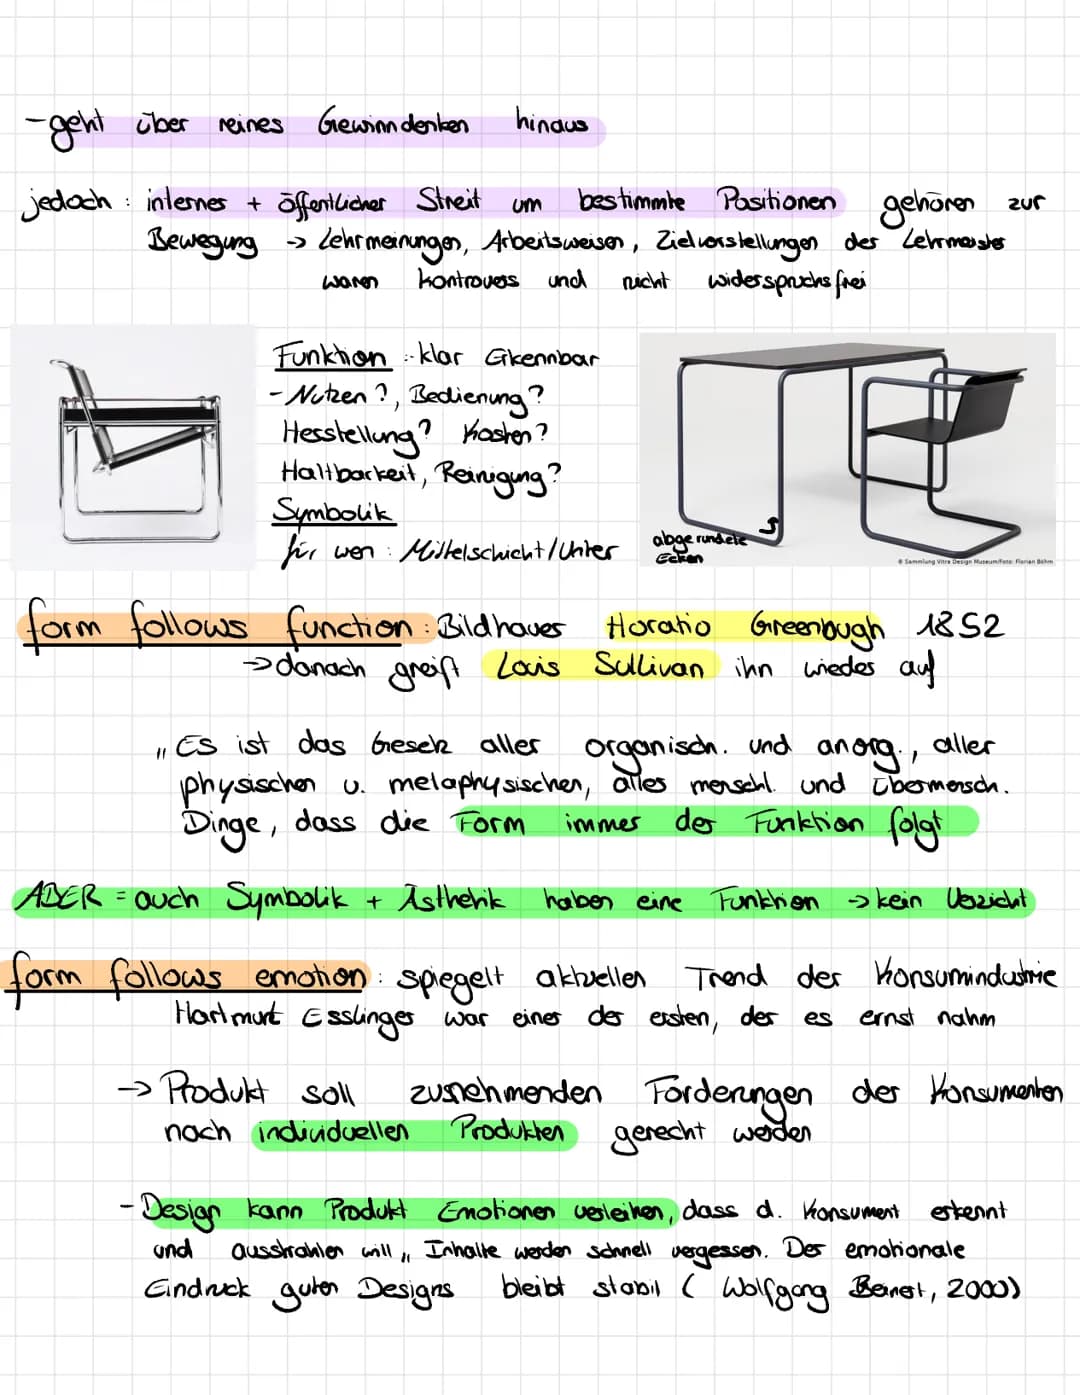 -geht über reines Gewinndenken hinaus
jedoch : internes + öffentlicher Streit um bestimmte Positionen gehören zur
Bewegung -> Lehrmeinungen, Arbeitsweisen, Zielvorstellungen der Lehrmeister
waren kontrovers und nicht widerspruchsfrei
Funktion :-klar Erkennbar
-Nutzen?, Bedienung?
Herstellung? Kosten?
Haltbarkeit, Reinigung?
Symbolik
für wen : Mittelschicht/Unter
abgerundete
Ecken
© Sammlung Vitra Design Museum/Foto: Florian Böhm
form follows function : Bildhauer Horatio Greenough 1852
->danach greift Louis Sullivan ihn wieder auf
„Es ist das Gesetz aller organisch. und anorg., aller
physischen u. metaphysischen, alles menschl. und Übermensch.
Dinge, dass die Form immer der Funktion folgt
ABER = auch Symbolik + Ästhetik haben eine Funktion -> kein Verzicht
form follows emotion : spiegelt aktuellen Trend der Konsumindustrie
Hartmurt Esslinger war einer der ersten, der es ernst nahm
-> Produkt soll zunehmenden Forderungen der Konsumenten
nach individuellen Produkten gerecht werden
- Design kann Produkt Emotionen verleihen, dass d. Konsument erkennt
und ausstrahlen will „ Inhalte werden schnell vergessen. Der emotionale
Eindruck guten Designs bleibt stabil ( Wolfgang Beinert, 2000)